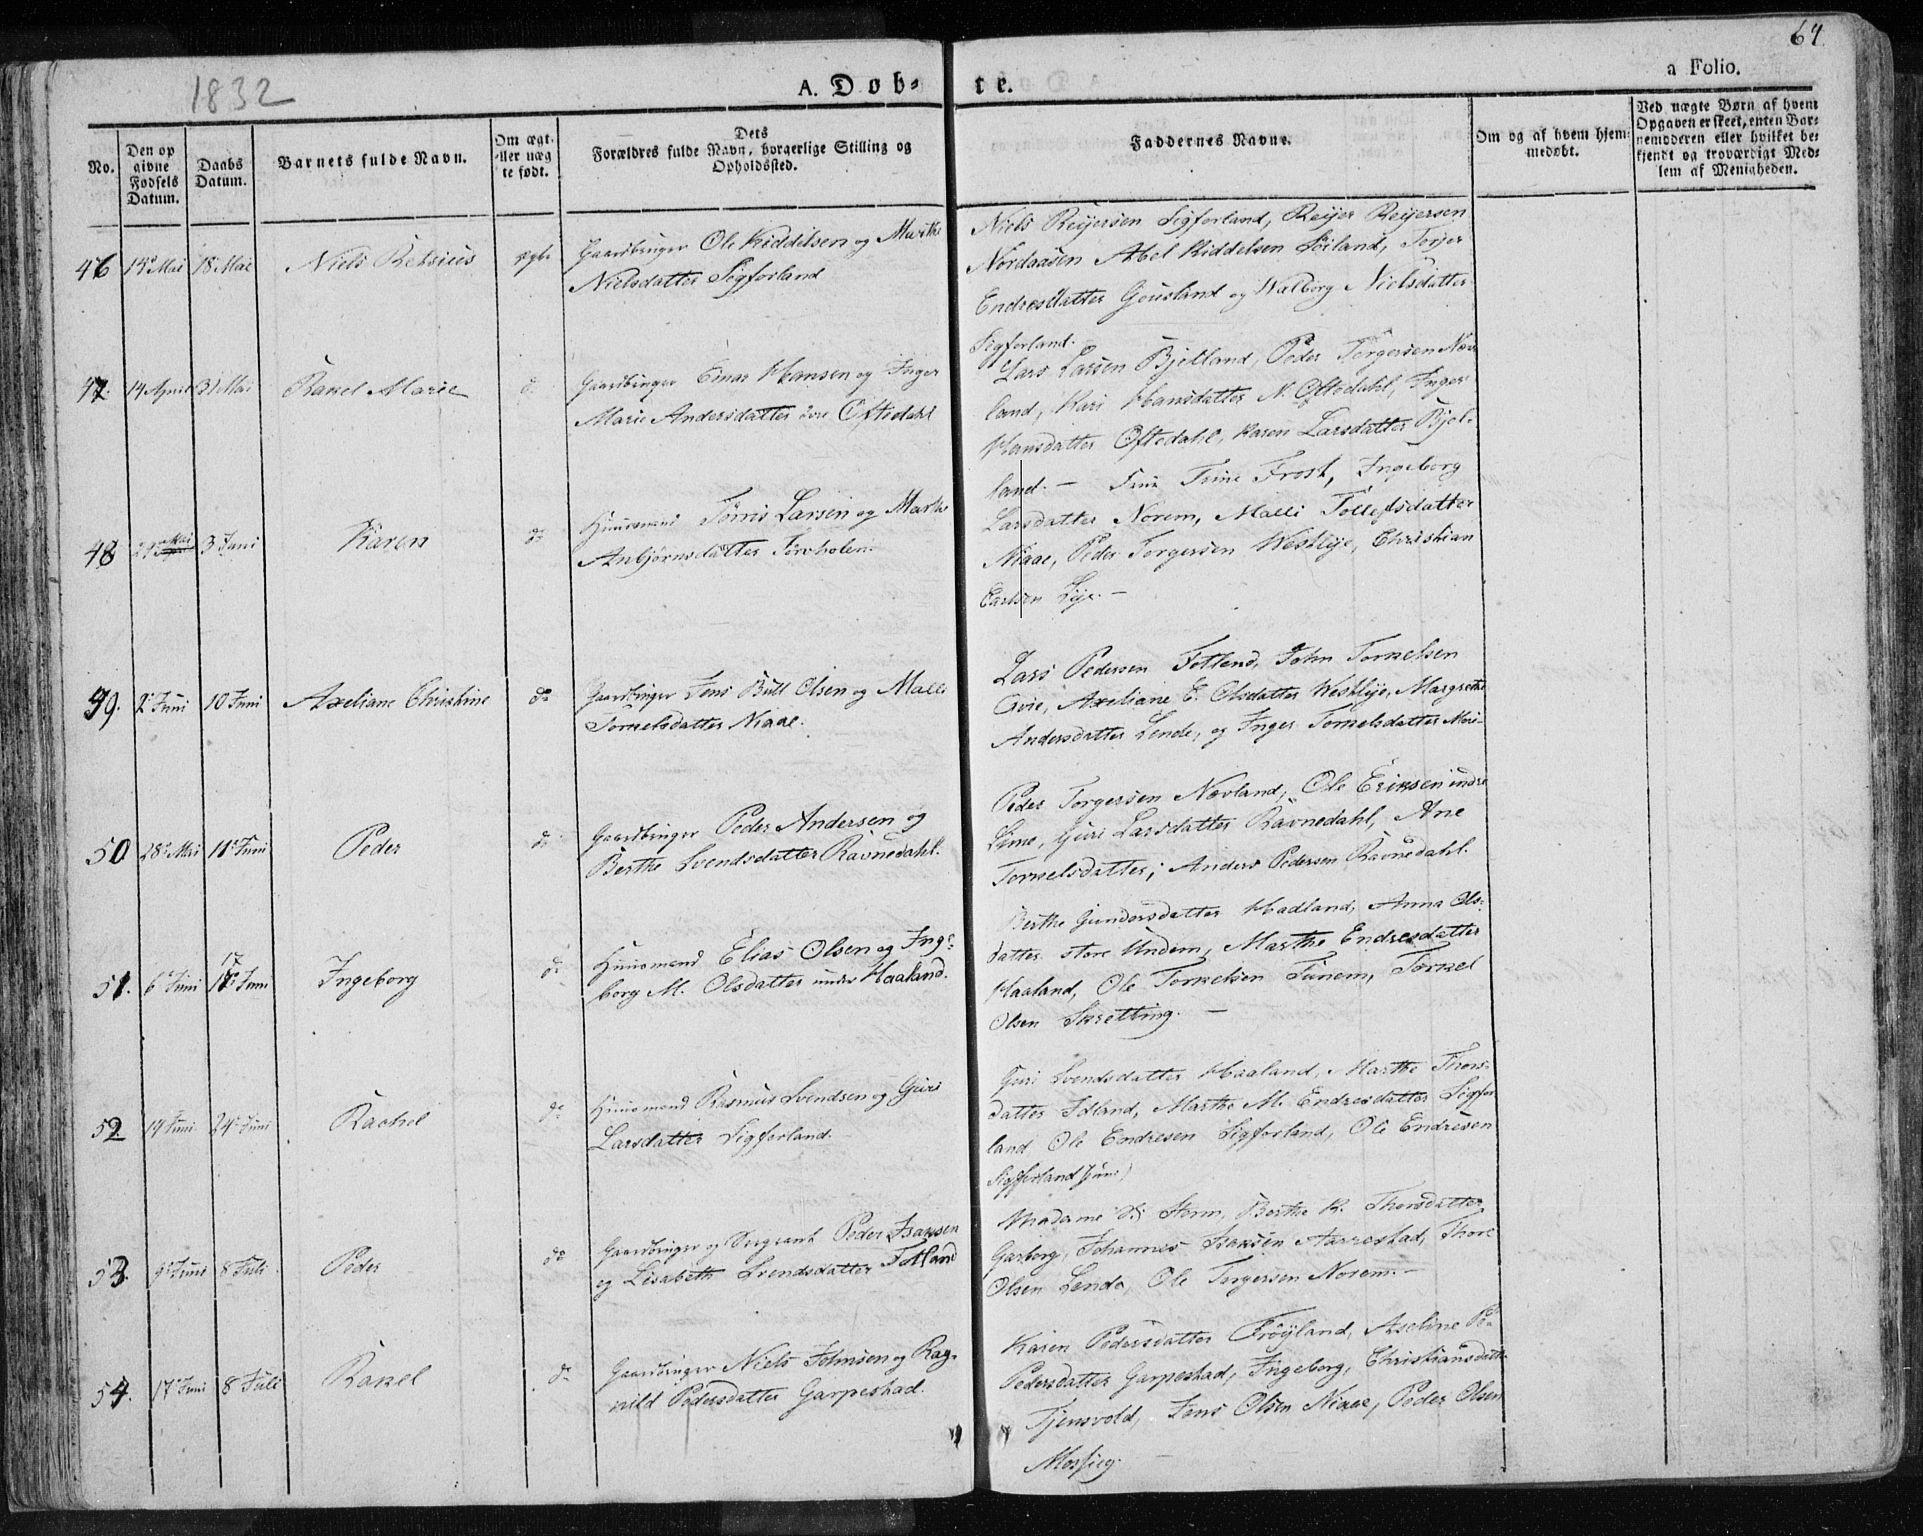 1832
64
A. Døb-
te.
a Folio.
No.
Den op
givne
Fødsels
Datum.
Daabs
Datum.
Barnets fulde Navn.
Om ægt-
eller næg
te født.
Dets
Forældres fulde Navn, borgerlige Stilling og
Opholdssted.
Faddernes Navne.
Om og af hvem hjem-
medøbt.
Ved uægte Børn af hvem
Opgaven er skeet, enten Bar-
nemoderen eller hvilket be-
kjendt og troværdigt Med-
lem af Menigheden.
46 14de Mai 18 Mai Niels Retsius ægte
Gaardbruger Ole Kiddelsen og Marthe
Nielsdatter Sigforland
Niels Reijersen Sigforland, Reijer Reijersen
Nordaasen Abel Kiddelsen Söiland, Torjer
Endresdatter Gousland og Walborg Nielsdatter
Sigforland.
47. 14 April 31 Mai Rakel Marie do
Gaardbruger Einar Hansen og Inger
Marie Andersdatter Oftedahl
Lars Larsen Bjelland, Peder Torgersen Næv
land, Kari Hansdatter N. Oftedahl, Inger
Hansdatter Oftedahl, Karen Larsdatter Bjel-
land. –
48 Mai 3 Juni Karen do
Huusmand Törris Larsen og Marthe
Anbjørnsdatter Torvholen.
Trine Frost, Ingeborg
Larsdatter Norem, Malli Tollefsdatter
Niaae, Peder Torgersen Westlye, Christian
Carlsen Lye. –
49. 2 Juni 10 Juni Axeliane Christine do
Gaardbruger Jens Bull Olsen og Malli
Torkelsdatter Niaae.
Lars Pedersen Fotland, John Torkelsen
Qvie, Axeliane C. Olsdatter Westlye, Margrethe
Andersdatter Lende, og Inger Torkelsdatter
50 28 Mai 11 Juni Peder do
Gaardbruger Peder Andersen og
Berthe Svendsdatter Ravnedahl.
Peder Torgersen Nævland, Ole Eriksen indre
Lime, Guri Larsdatter Ravnedahl, Ane
Torkelsdatter, Anders Pedersen Ravnedahl.
51. 6 Juni 17 Juni Ingeborg do
Huusmand Elias Olsen og Inge-
borg M. Olsdatter under Haaland.
Berthe Gundersdatter Hadland, Anna Ols-
datter store Undem, Marthe Endresdatter
Haaland, Ole Torkelsen Tunem, Torkel
Olsen Skretting. –
52 14 Juni 24 Juni Rachel do
Huusmand Rasmus Svendsen og Guri
Larsdatter Sigforland.
Guri Svendsdatter Haaland, Marthe Thors-
datter Idland, Marthe M. Endresdatter Sigfor
land Ole Endresen Sigforland, Ole Endresen
Sigforland (jun:)
53. 9 Juni 8 Juli Peder do
Gaardbruger og Sergeant Peder Isaksen
og Lisabeth Svendsdatter Fotland
Madame Storm, Berthe K. Thorsdatter
Garborg, Johannes Isaksen Aarrestad, Thore
Olsen Lende, Ole Torgersen Norem. –
54. 17 Juni 8 Juli Rakel do
Gaardbruger Niels Johnsen og Rag-
nild Pedersdatter Garpestad.
Karen Pedersdatter Fröyland, Axeline Pe-
Pedersdatter Garpestad, Ingeborg Christiansdatter
Tjensvold, Jens Olsen Niaae, Peder Olsen
Mossieg.